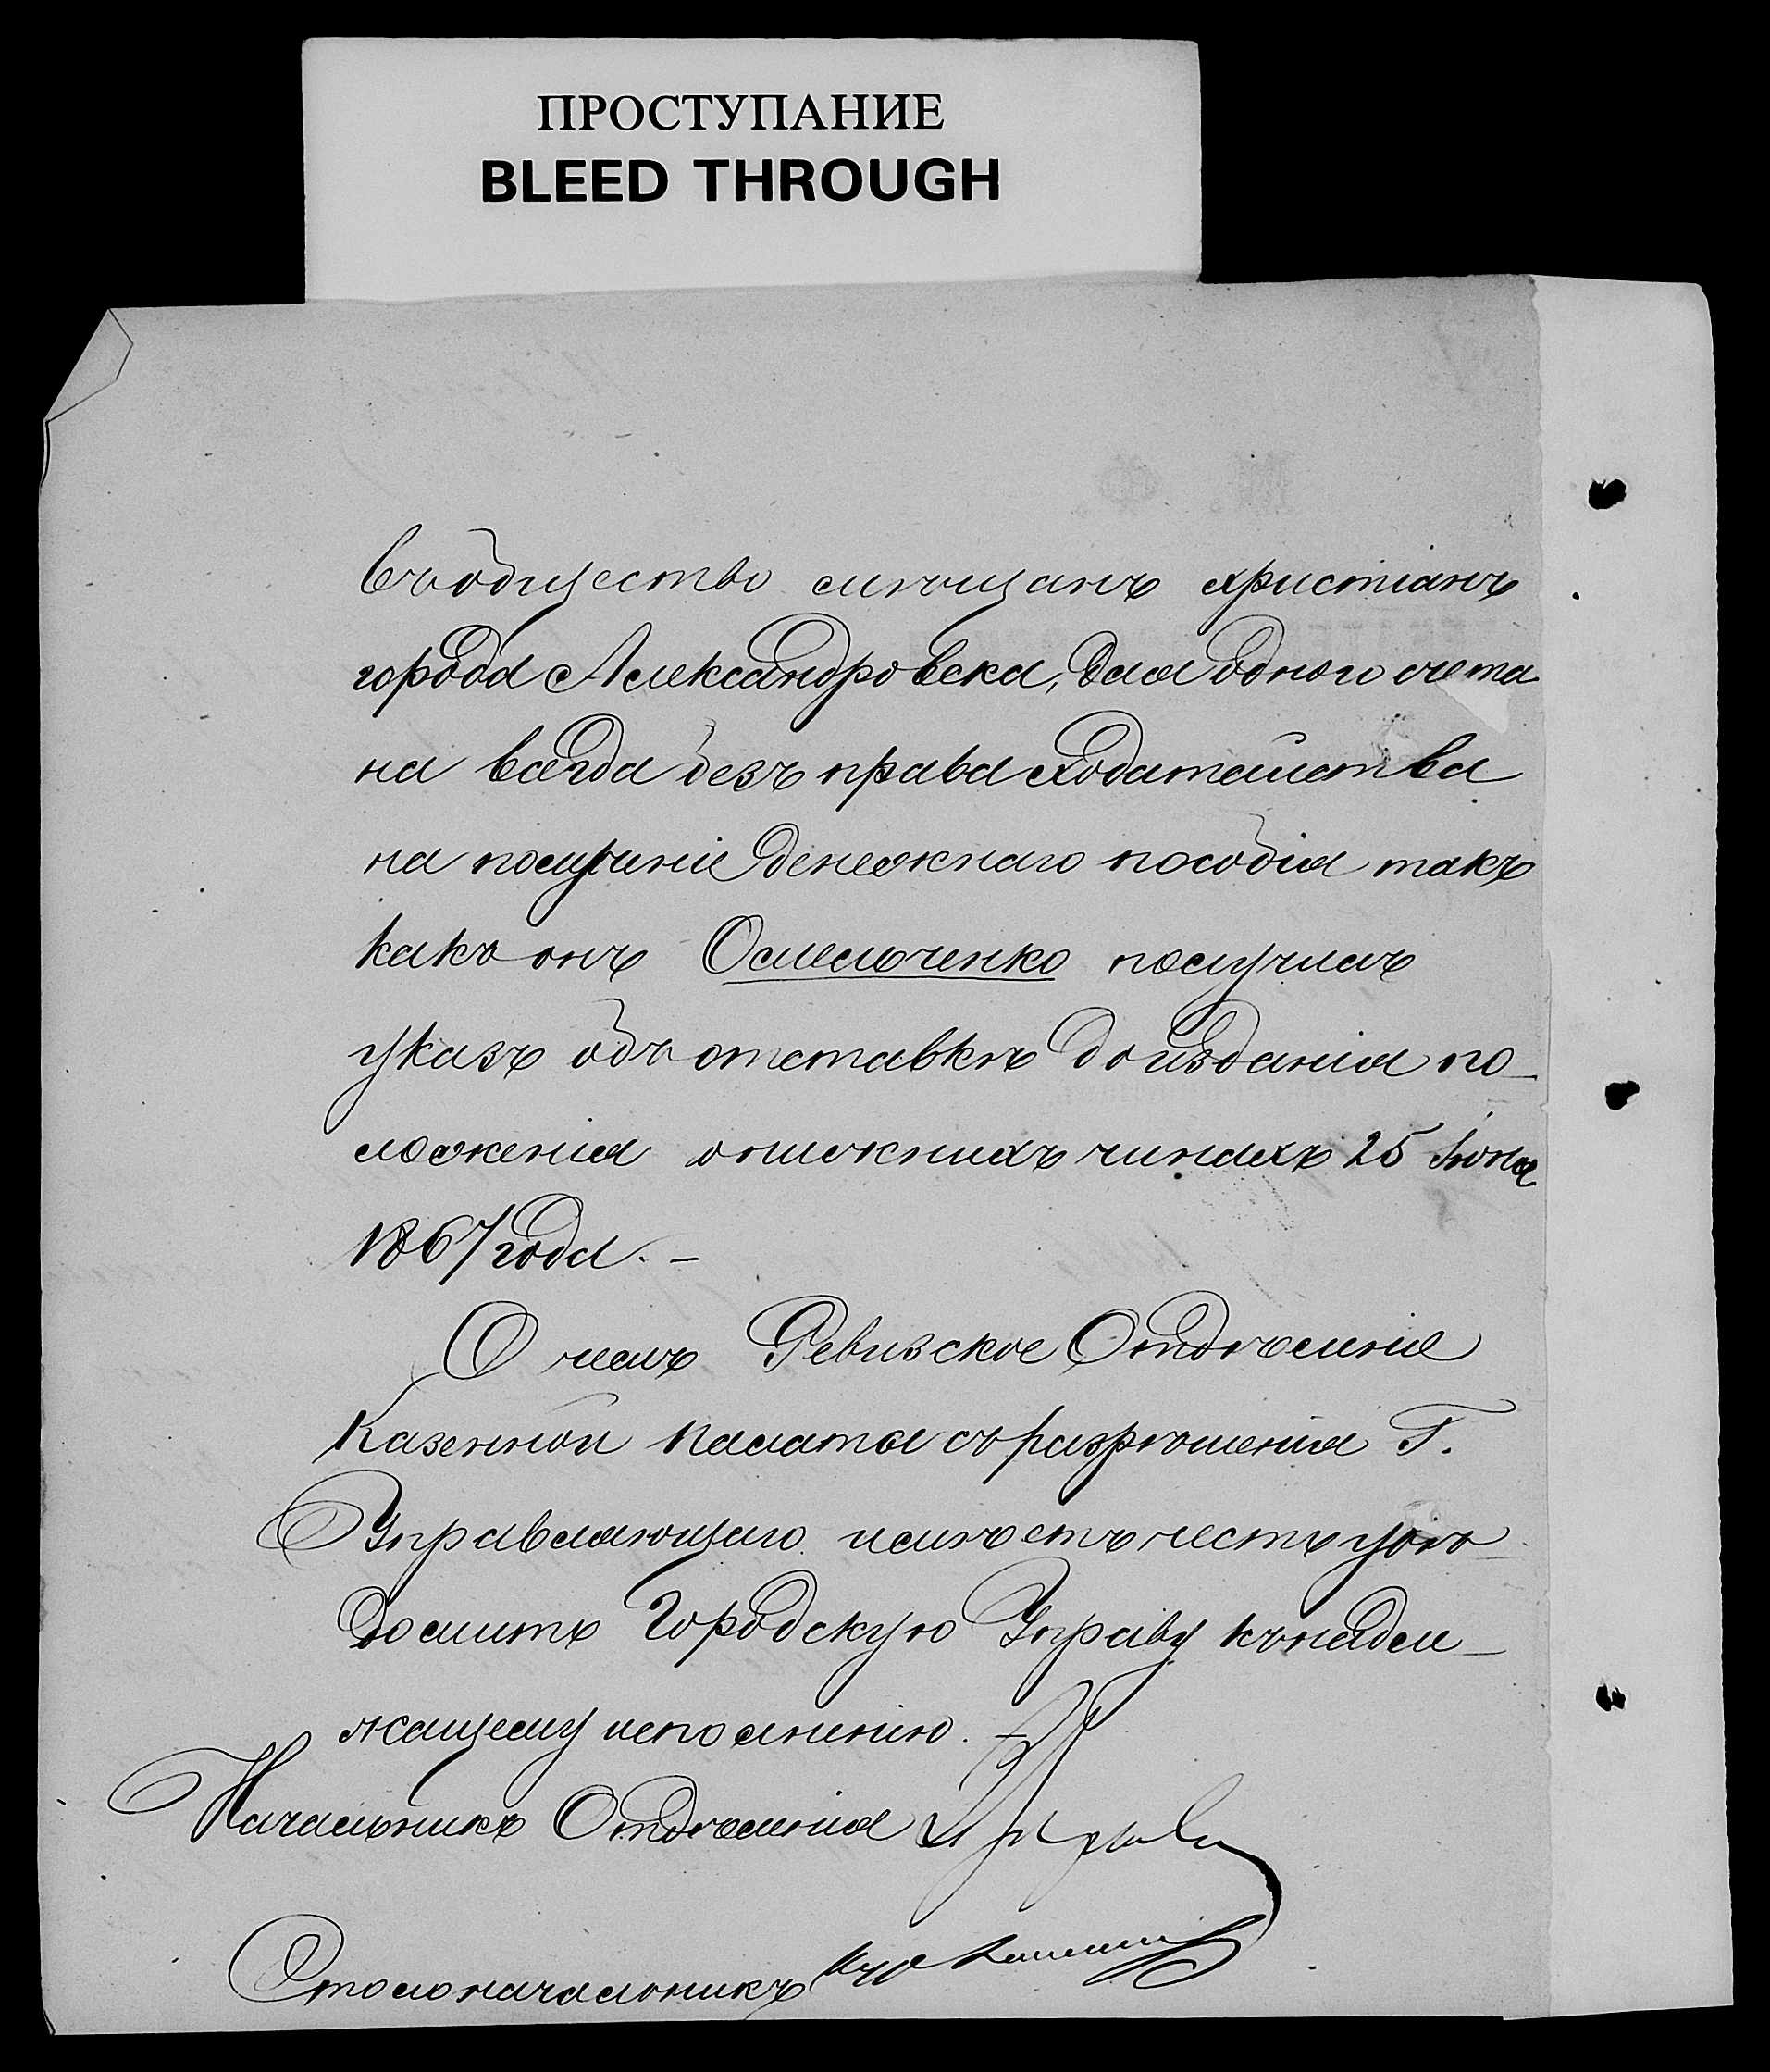 ПРОСТУПАНИЕ
BLEED THROUGH
въ общество мѣщанъ христіанъ
города Александровска, для одного счета
на всегда безъ права ходатайства
на полученіе денежнаго пособія такъ
какъ онъ Омельченко получилъ
указъ объ отставкѣ до изданія по-
ложенія о нижнихъ чинахъ 25 Іюня
1867 года. –
О чемъ Ревизское Отдѣленіе
Казенной Палаты съ разрѣшенія Г.
Управляющаго имѣетъ честь увѣ-
домить Городскую Управу къ надле-
жащему исполненію. –
Начальникъ Отдѣленія
Столоначальникъ